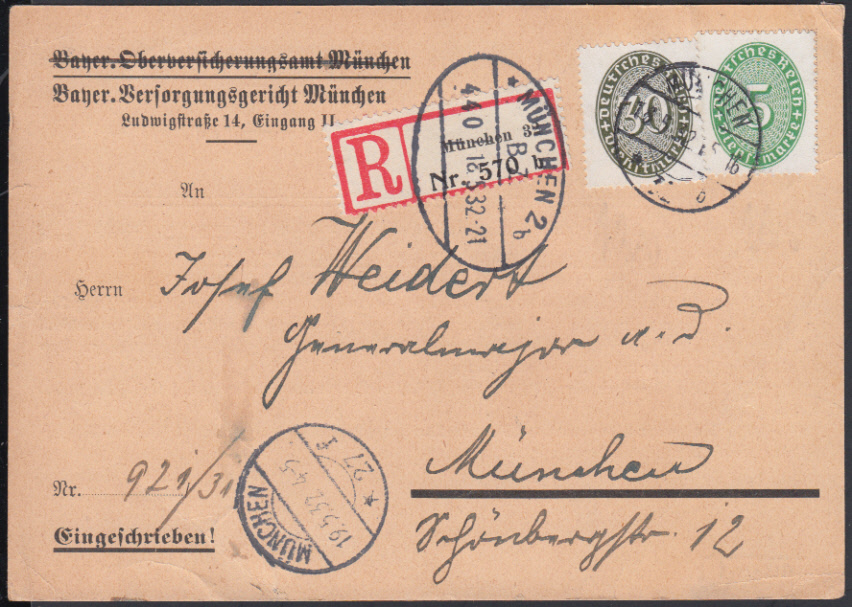 Bayer. Oberversicherungsamt München
Bayer. Versorgungsgericht München
Ludwigstraße 14, Eingang II
R
München 3
Nr. 570 b
MÜNCHEN 2
B.Z.
b
18.5.32.21
Deutsches Reich
30
Dienstmarke
Deutsches Reich
5
Dienstmarke
MÜNCHEN
An
Herrn Josef Weidert
Generalmajor a. D.
München
Schönbergstr. 12
Nr. 921/31
Eingeschrieben!
MÜNCHEN
19.5.32. 4-5
* 27 f